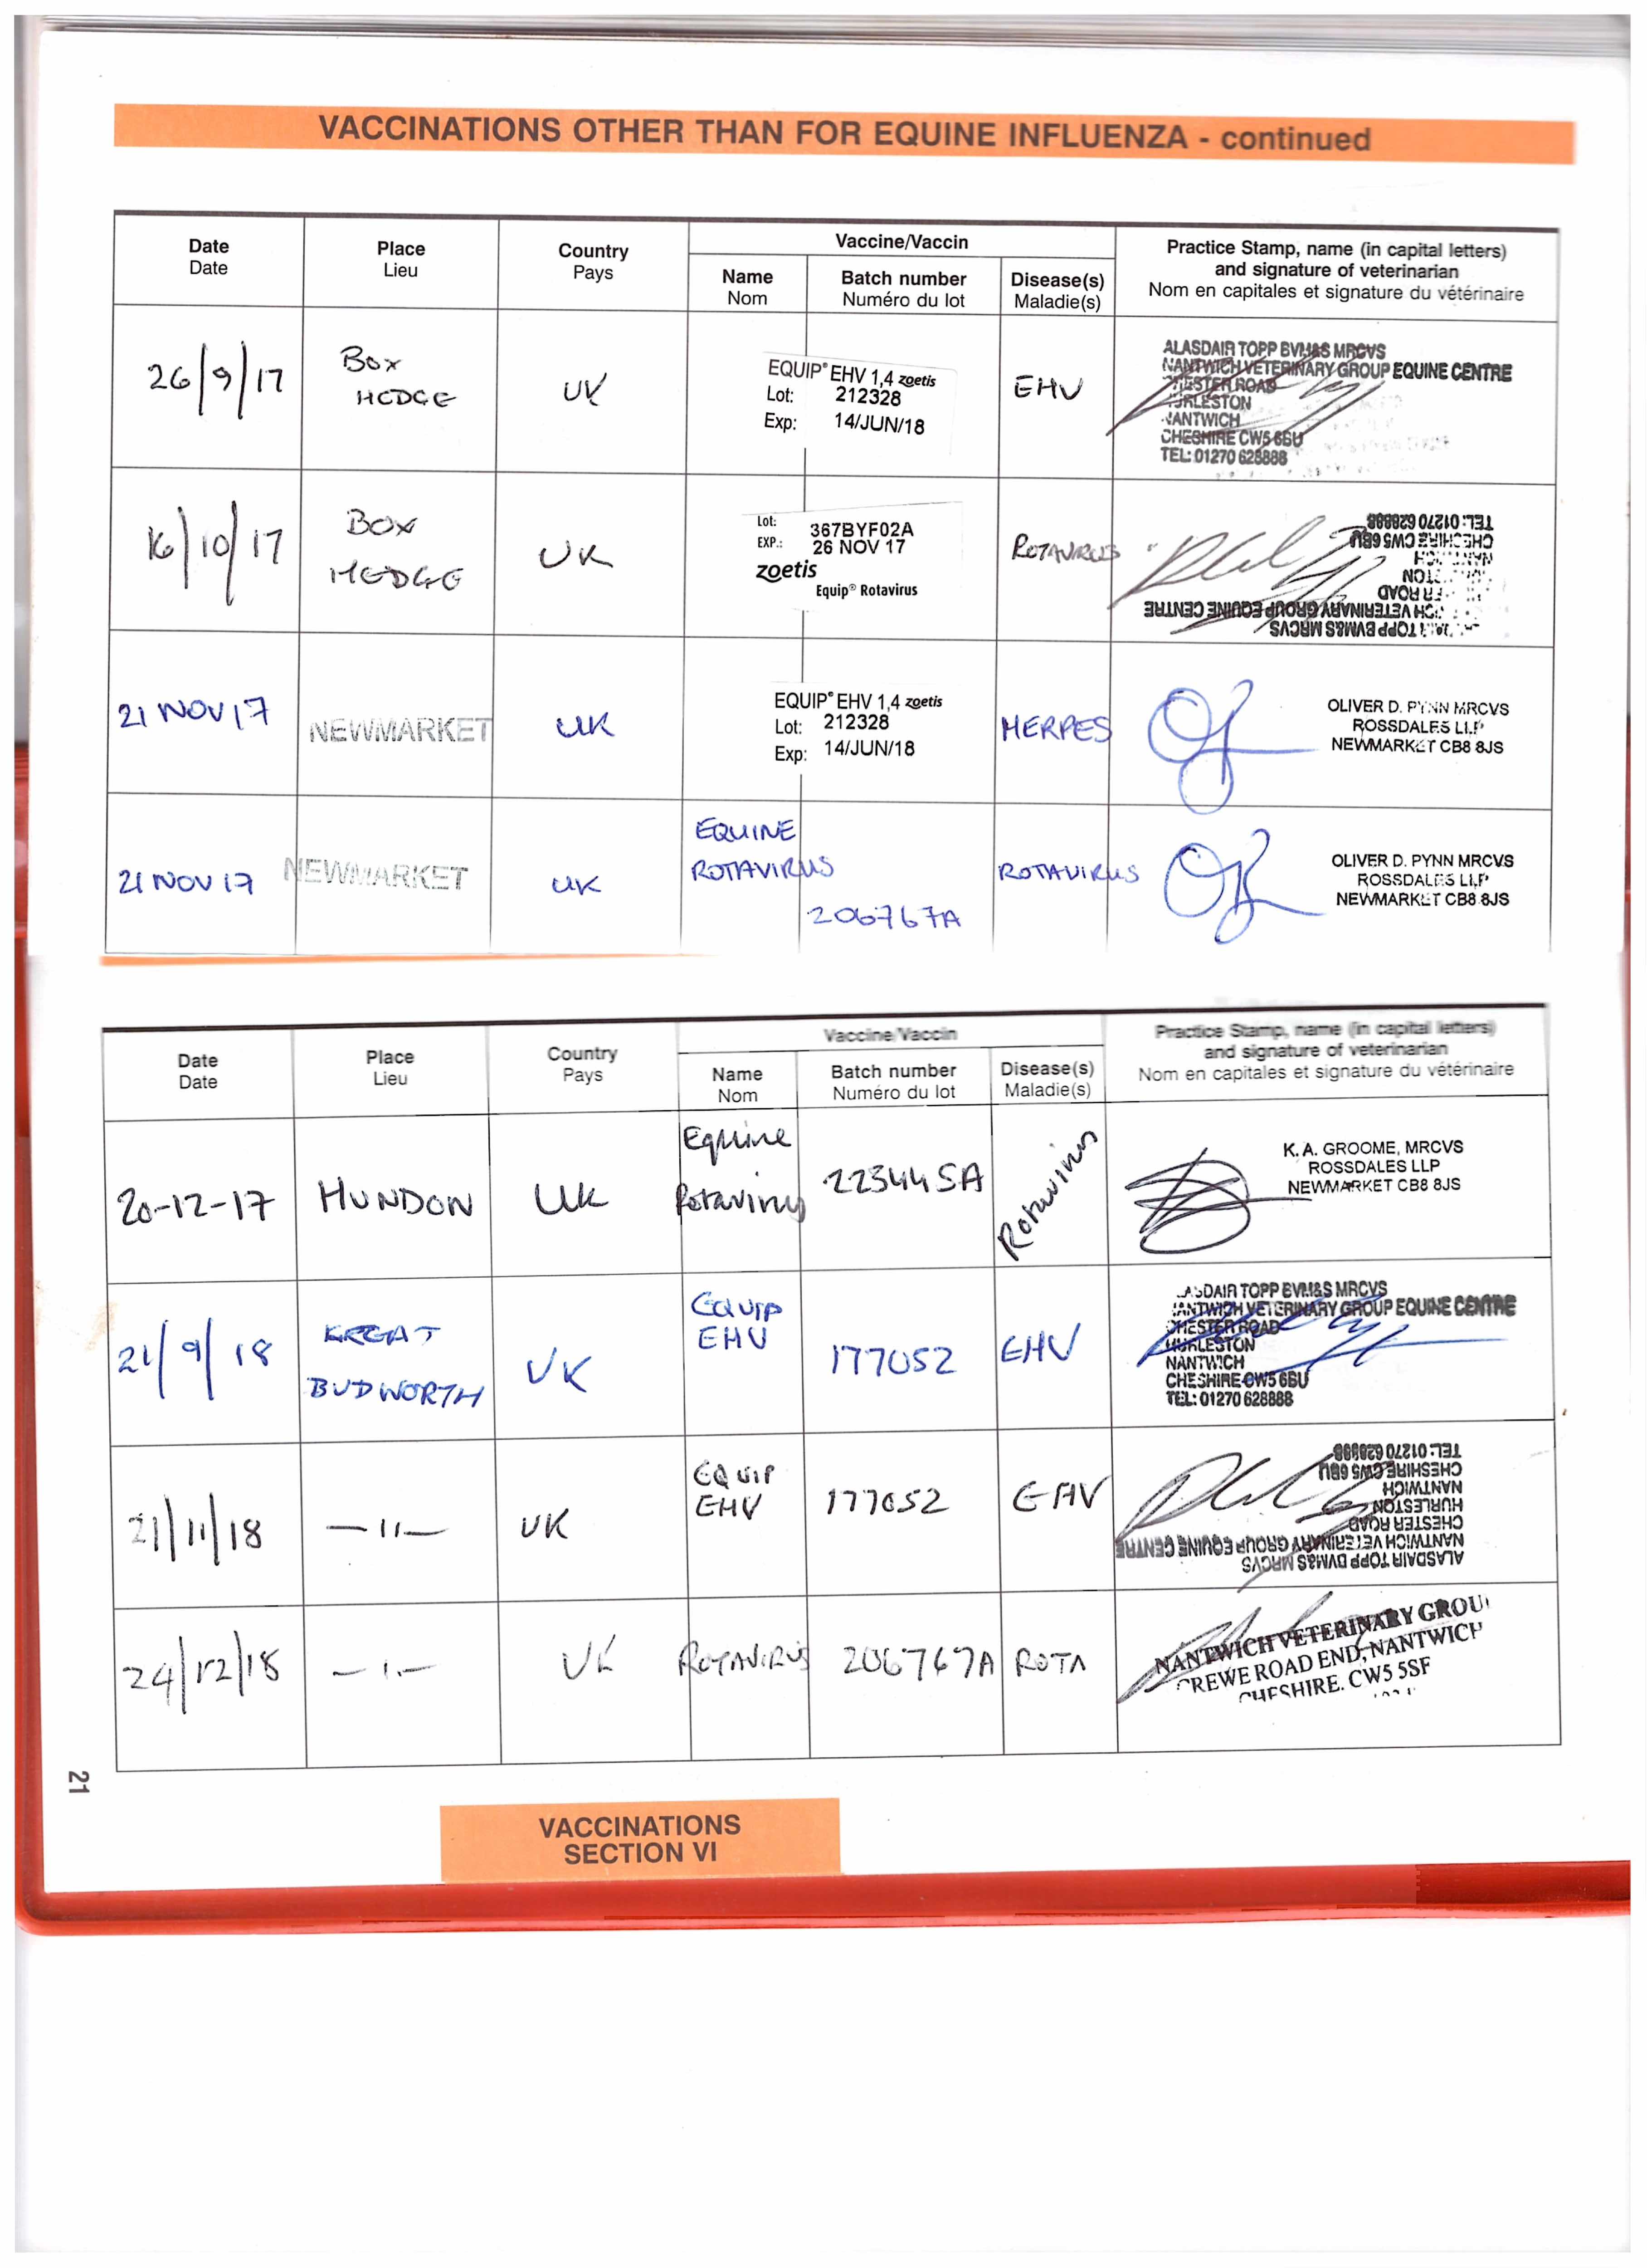 VACCINATIONS OTHER THAN FOR EQUINE INFLUENZA - continued
Date
Date
Place
Lieu
Country
Pays
Vaccine/Vaccin
Name
Nom
Batch number
Numéro du lot
Disease(s)
Maladie(s)
Practice Stamp, name (in capital letters)
and signature of veterinarian
Nom en capitales et signature du vétérinaire
26/9/17
BOX
HEDGE
UK
EQUIP® EHV 1,4 zoetis
Lot: 212328
Exp: 14/JUN/18
EHV
ALASDAIR TOPP BVM&S MRCVS
NANTWICH VETERINARY GROUP EQUINE CENTRE
CHESTER ROAD
HURLESTON
NANTWICH
CHESHIRE CW5 6BU
TEL: 01270 628888
16/10/17
BOX
HEDGE
UK
Lot: 367BYF02A
EXP.: 26 NOV 17
zoetis
Equip® Rotavirus
ROTAVIRUS
TOPP BVM&S MRCVS
VETERINARY GROUP EQUINE CENTRE
ROAD
CHESHIRE CW5 6BU
TEL: 01270 628888
21 NOV 17
NEWMARKET
UK
EQUIP® EHV 1,4 zoetis
Lot: 212328
Exp: 14/JUN/18
HERPES
OLIVER D. PYNN MRCVS
ROSSDALES LLP
NEWMARKET CB8 8JS
21 NOV 17
NEWMARKET
UK
EQUINE
ROTAVIRUS
206767A
ROTAVIRUS
OLIVER D. PYNN MRCVS
ROSSDALES LLP
NEWMARKET CB8 8JS
Date
Date
Place
Lieu
Country
Pays
Vaccine/Vaccin
Name
Nom
Batch number
Numéro du lot
Disease(s)
Maladie(s)
Practice Stamp, name (in capital letters)
and signature of veterinarian
Nom en capitales et signature du vétérinaire
20-12-17
HUNDON
UK
Equine
Rotavirus
223445A
Rotavirus
K. A. GROOME, MRCVS
ROSSDALES LLP
NEWMARKET CB8 8JS
21/9/18
GREAT
BUDWORTH
UK
EQUIP
EHV
177052
EHV
ALASDAIR TOPP BVM&S MRCVS
NANTWICH VETERINARY GROUP EQUINE CENTRE
CHESTER ROAD
HURLESTON
NANTWICH
CHESHIRE CW5 6BU
TEL: 01270 628888
21/11/18
—11—
UK
EQUIP
EHV
177052
EHV
ALASDAIR TOPP BVM&S MRCVS
NANTWICH VETERINARY GROUP EQUINE CENTRE
CHESTER ROAD
HURLESTON
NANTWICH
CHESHIRE CW5 6BU
TEL: 01270 628888
24/12/18
—1.—
UK
ROTAVIRUS
206767A
ROTA
NANTWICH VETERINARY GROU
CREWE ROAD END, NANTWICH
CHESHIRE. CW5 5SF
21
VACCINATIONS
SECTION VI